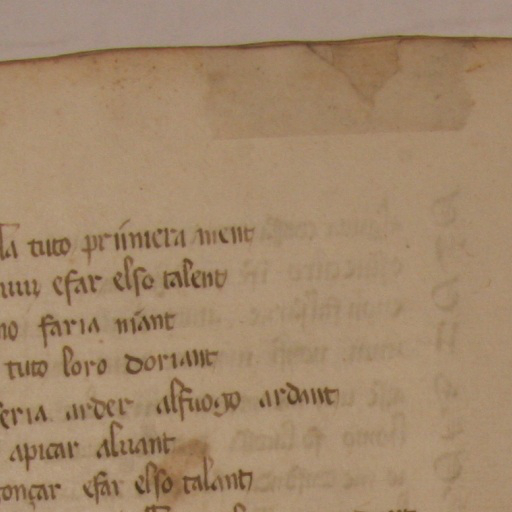 la tuto priimiera ment
efar elso talent
no faria niant
tuto loro doriant
seria arder alfuogo ardant
apicar aluant
onçar efar elso talant